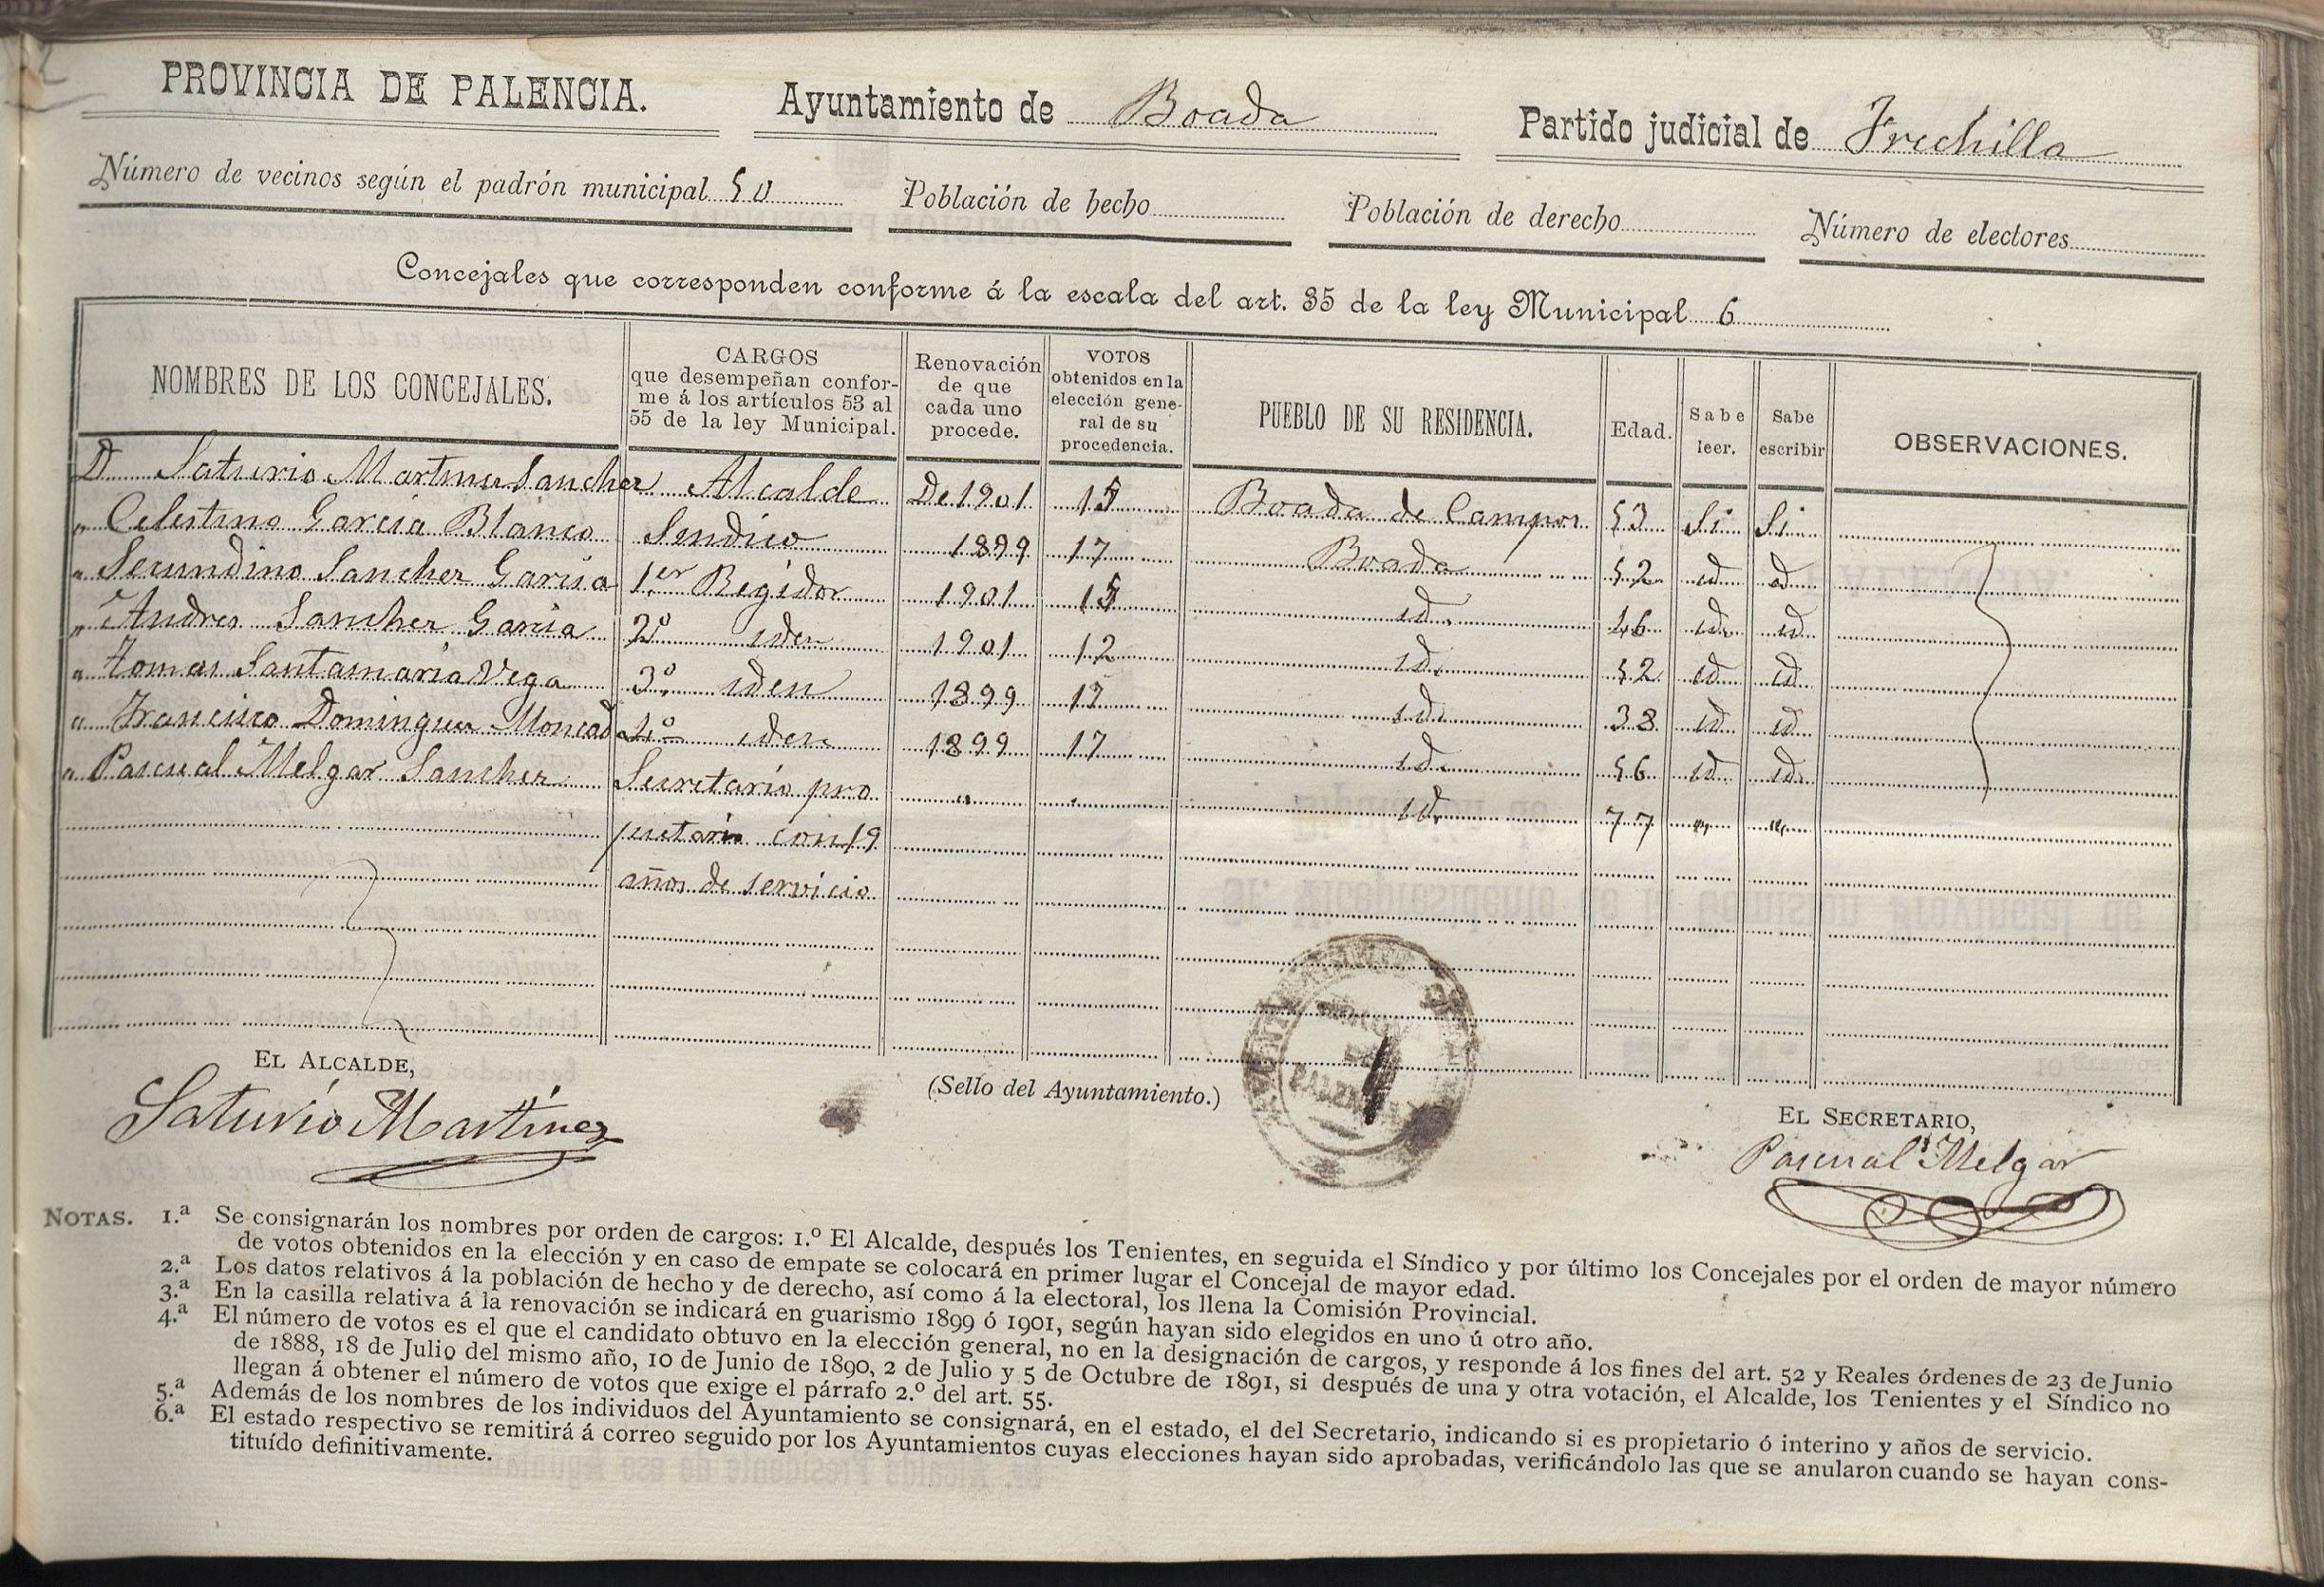 PROVINCIA DE PALENCIA. Ayuntamiento de Boada Partido judicial de Frechilla
Número de vecinos según el padrón municipal 50 Población de hecho Población de derecho Número de electores
Concejales que corresponden conforme á la escala del art. 35 de la ley Municipal 6
NOMBRES DE LOS CONCEJALES.
CARGOS
que desempeñan confor-
me á los artículos 53 al
55 de la ley Municipal.
Renovación
de que
cada uno
procede.
VOTOS
obtenidos en la
elección gene-
ral de su
procedencia.
PUEBLO DE SU RESIDENCIA.
Edad.
Sabe
leer.
Sabe
escribir
OBSERVACIONES.
D Saturio Martinez Sanchez Alcalde De 1901 15 Boada de Campos 53 Si Si
" Celestino Garcia Blanco Sendico 1899 17 Boada 52 id id
" Secundino Sanchez Garcia 1.er Regidor 1901 15 id. 46 id. id
" Andres Sanchez Garcia 2º iden 1901 12 id. 52 id id
" Tomas Santamaria Vega 3º iden 1899 17 id. 38 id id
" Francisco Dominguez Moncada 4º iden 1899 17 id. 56 id id.
" Pascual Melgar Sanchez Secretario pro " " id. 77 " "
pietario con 19
años de servicio
EL ALCALDE,
Saturio Martinez
(Sello del Ayuntamiento.)
EL SECRETARIO,
Pascual Melgar
NOTAS. 1.ª Se consignarán los nombres por orden de cargos: 1.º El Alcalde, después los Tenientes, en seguida el Síndico y por último los Concejales por el orden de mayor número
de votos obtenidos en la elección y en caso de empate se colocará en primer lugar el Concejal de mayor edad.
2.ª Los datos relativos á la población de hecho y de derecho, así como á la electoral, los llena la Comisión Provincial.
3.ª En la casilla relativa á la renovación se indicará en guarismo 1899 ó 1901, según hayan sido elegidos en uno ú otro año.
4.ª El número de votos es el que el candidato obtuvo en la elección general, no en la designación de cargos, y responde á los fines del art. 52 y Reales órdenes de 23 de Junio
de 1888, 18 de Julio del mismo año, 10 de Junio de 1890, 2 de Julio y 5 de Octubre de 1891, si después de una y otra votación, el Alcalde, los Tenientes y el Síndico no
llegan á obtener el número de votos que exige el párrafo 2.º del art. 55.
5.ª Además de los nombres de los individuos del Ayuntamiento se consignará, en el estado, el del Secretario, indicando si es propietario ó interino y años de servicio.
6.ª El estado respectivo se remitirá á correo seguido por los Ayuntamientos cuyas elecciones hayan sido aprobadas, verificándolo las que se anularon cuando se hayan cons-
tituído definitivamente.